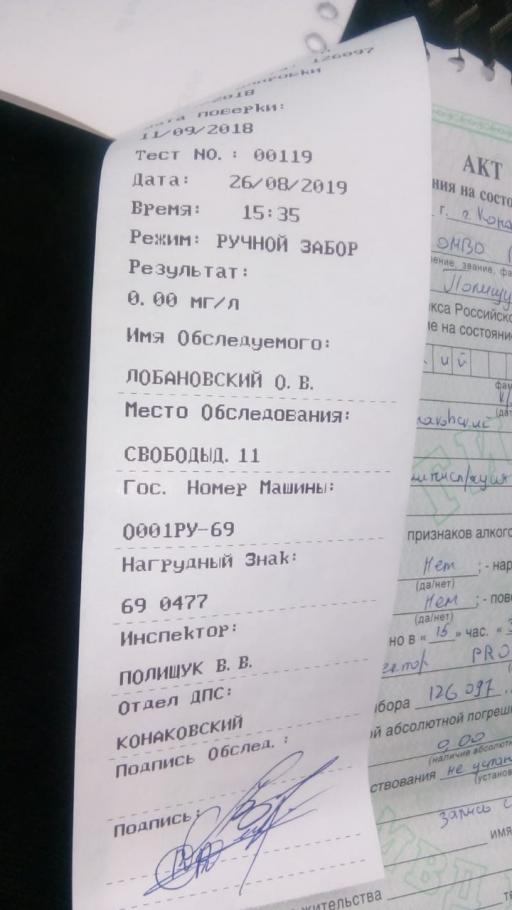 126097
2018
Дата поверки:
11/09/2018
Тест NO.: 00119
Дата: 26/08/2019
Время: 15:35
Режим: РУЧНОЙ ЗАБОР
Результат:
0.00 мг/л
Имя Обследуемого:
ЛОБАНОВСКИЙ О. В.
Место Обследования:
СВОБОДЫД. 11
Гос. Номер Машины:
О001РУ-69
Нагрудный Знак:
69 0477
Инспектор:
ПОЛИЩУК В. В.
Отдел ДПС:
КОНАКОВСКИЙ
Подпись Обслед.:
Подпись:
АКТ
ния на состо
г. г. Кона
ОМВО
ение, звание, фа
Полищу
кса Российско
ие на состояни
ий
фам
(дат
признаков алког
Нет ; - нар
(да/нет)
Нем ; - пов
(да/нет)
но в « 15 » час. «
PRO
бора 126 097
й абсолютной погреш
0,00
(наличие абсолютн
ствования не устан
(устано
запись
имя
жительства
МВД